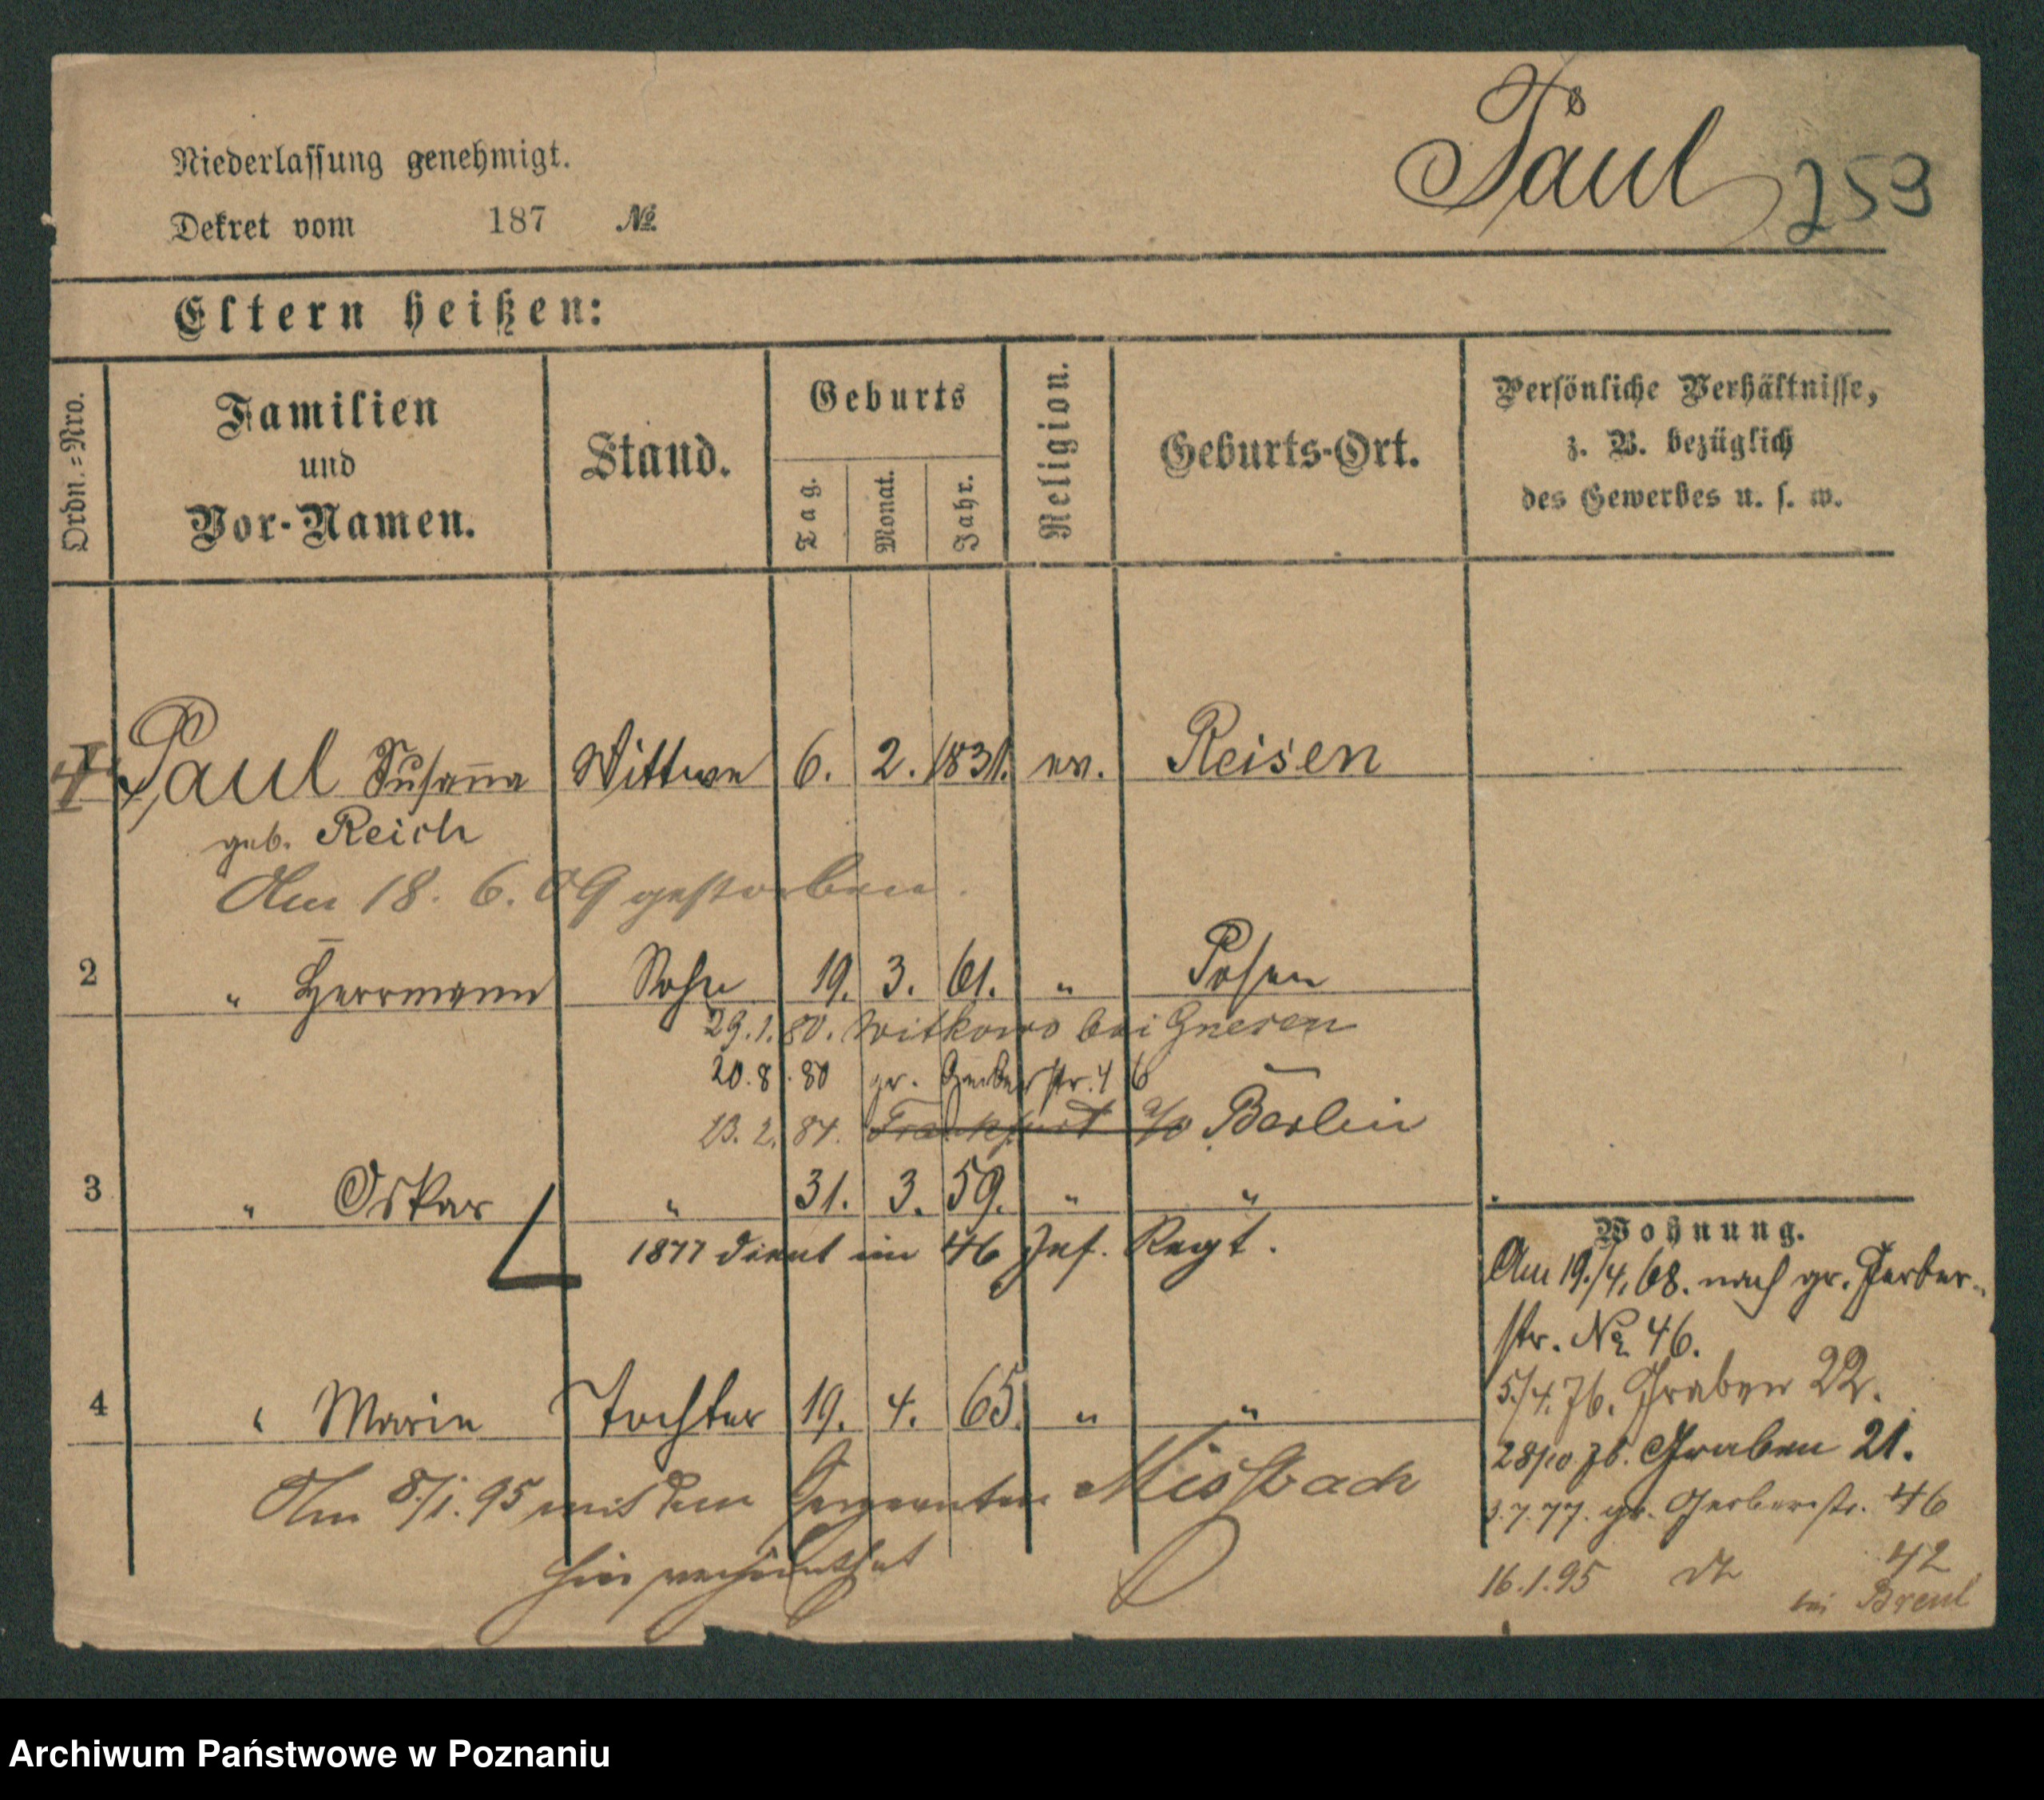 Niederlassung genehmigt.
Dekret vom 187 №
Paul 259
Eltern heißen:
Ordn.=Nro.
Familien
und
Vor-Namen.
Stand.
Geburts
Tag.
Monat.
Jahr.
Religion.
Geburts-Ort.
Persönliche Verhältnisse,
z. B. bezüglich
des Gewerbes u. s. w.
Paul Susanna Wittwe 6. 2. 1831. ev. Reisen
geb. Reich
Am 18. 6. 09 gestorben.
2 " Herrmann Sohn 19. 3. 61. " Posen
29.1.80. Witkowo bei Gnesen
20.8.80 gr. Gerberstr. 46
13.2.84. Frankfurt a/O Berlin
3 " Oskar " 31. 3. 59. " "
1877 dient im 46 Inf. Regt.
4 " Marie Tochter 19. 4. 65. " "
Am 8/1.95 mit dem Sergeanten Missbach
hier verheirathet
Wohnung.
Am 19./4.68. nach gr. Gerber-
str. № 46.
5/4.76. Graben 22.
28/10 76. Graben 21.
3.7.77. gr. Gerberstr. 46
16.1.95 42
bei Breul